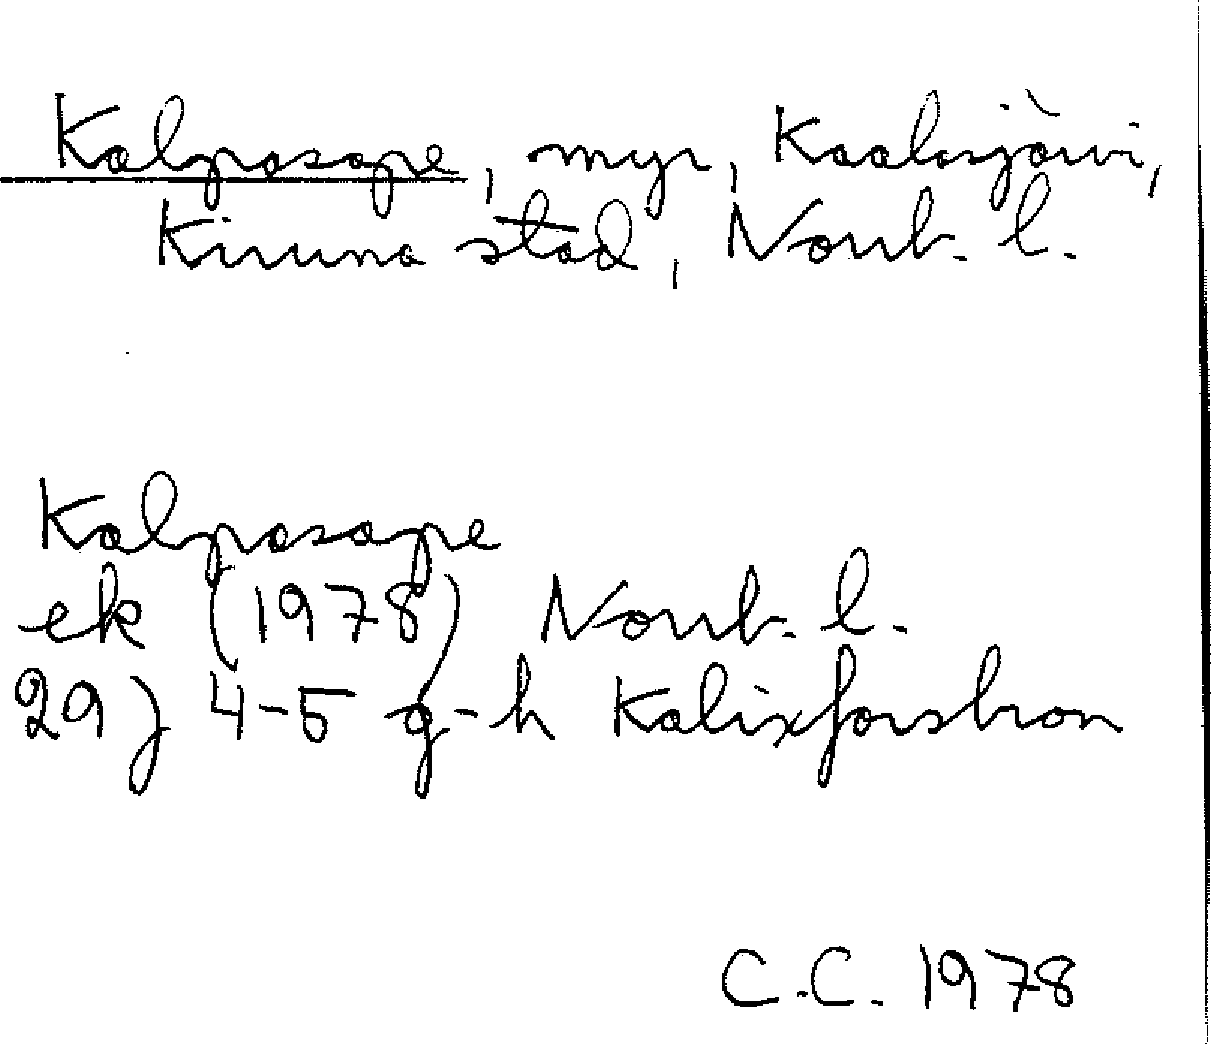 Kalposape, myr, Kaalasjärvi,
Kiruna stad, Norrb. l.
Kalposape
ek (1978) Norrb. l.
29 J 4-5 g-h Kalixforsbron
C.C. 1978